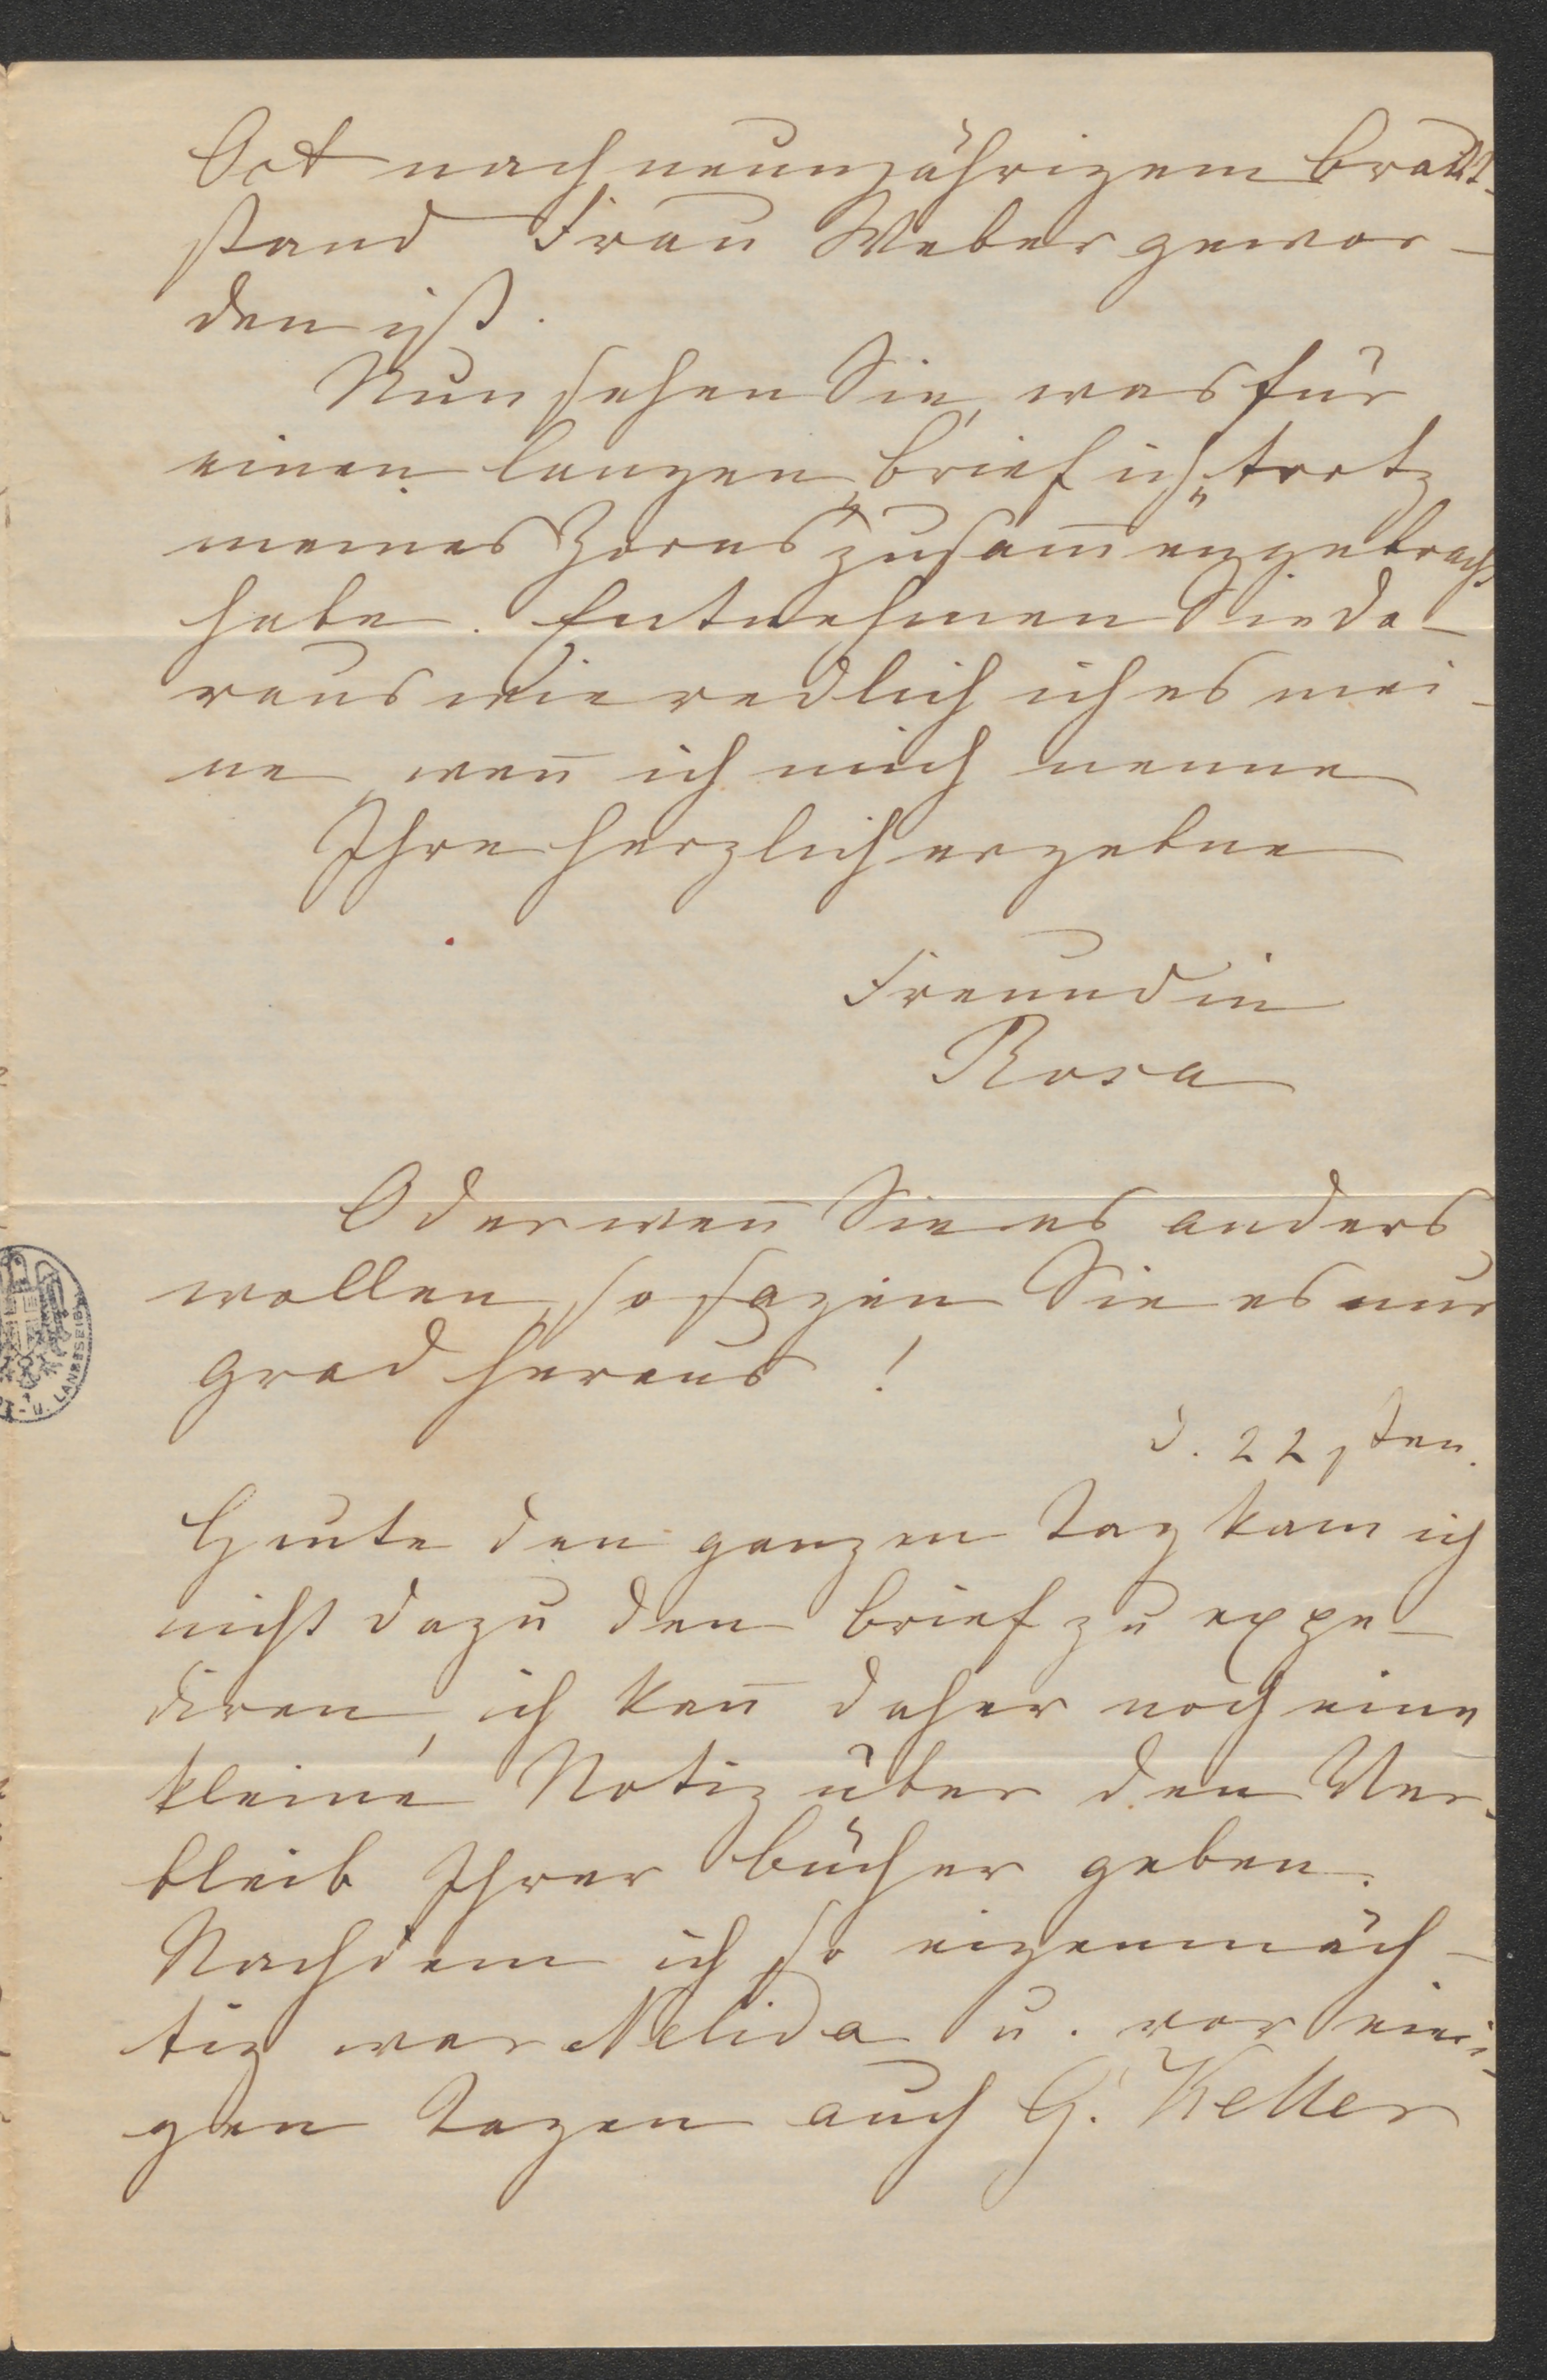 Oct nach neunjährigem Braut-
stand Frau Weber gewor-
den ist.
Nun sehen Sie, was für
einen langen Brief ich „trotz
meines Zornes“ zusam̅engebracht
habe. Entnehmen Sie da-
raus wie redlich ich es mei-
ne, wen̅ ich mich nenne
Ihre herzlich ergebne
Freundin
Rosa
Oder wen̅ Sie es anders
wollen, so sagen Sie es nur
grad heraus!
d. 22sten.
Heute den ganzen Tag kam ich
nicht dazu den Brief zu expe-
diren, ich kan̅ daher noch eine
kleine Notiz über den Ver-
bleib Ihrer Bücher geben.
Nachdem ich so eigenmäch-
tig war Nelida u. vor eini-
gen Tagen auch G. Keller
T- u. LANDESBIB